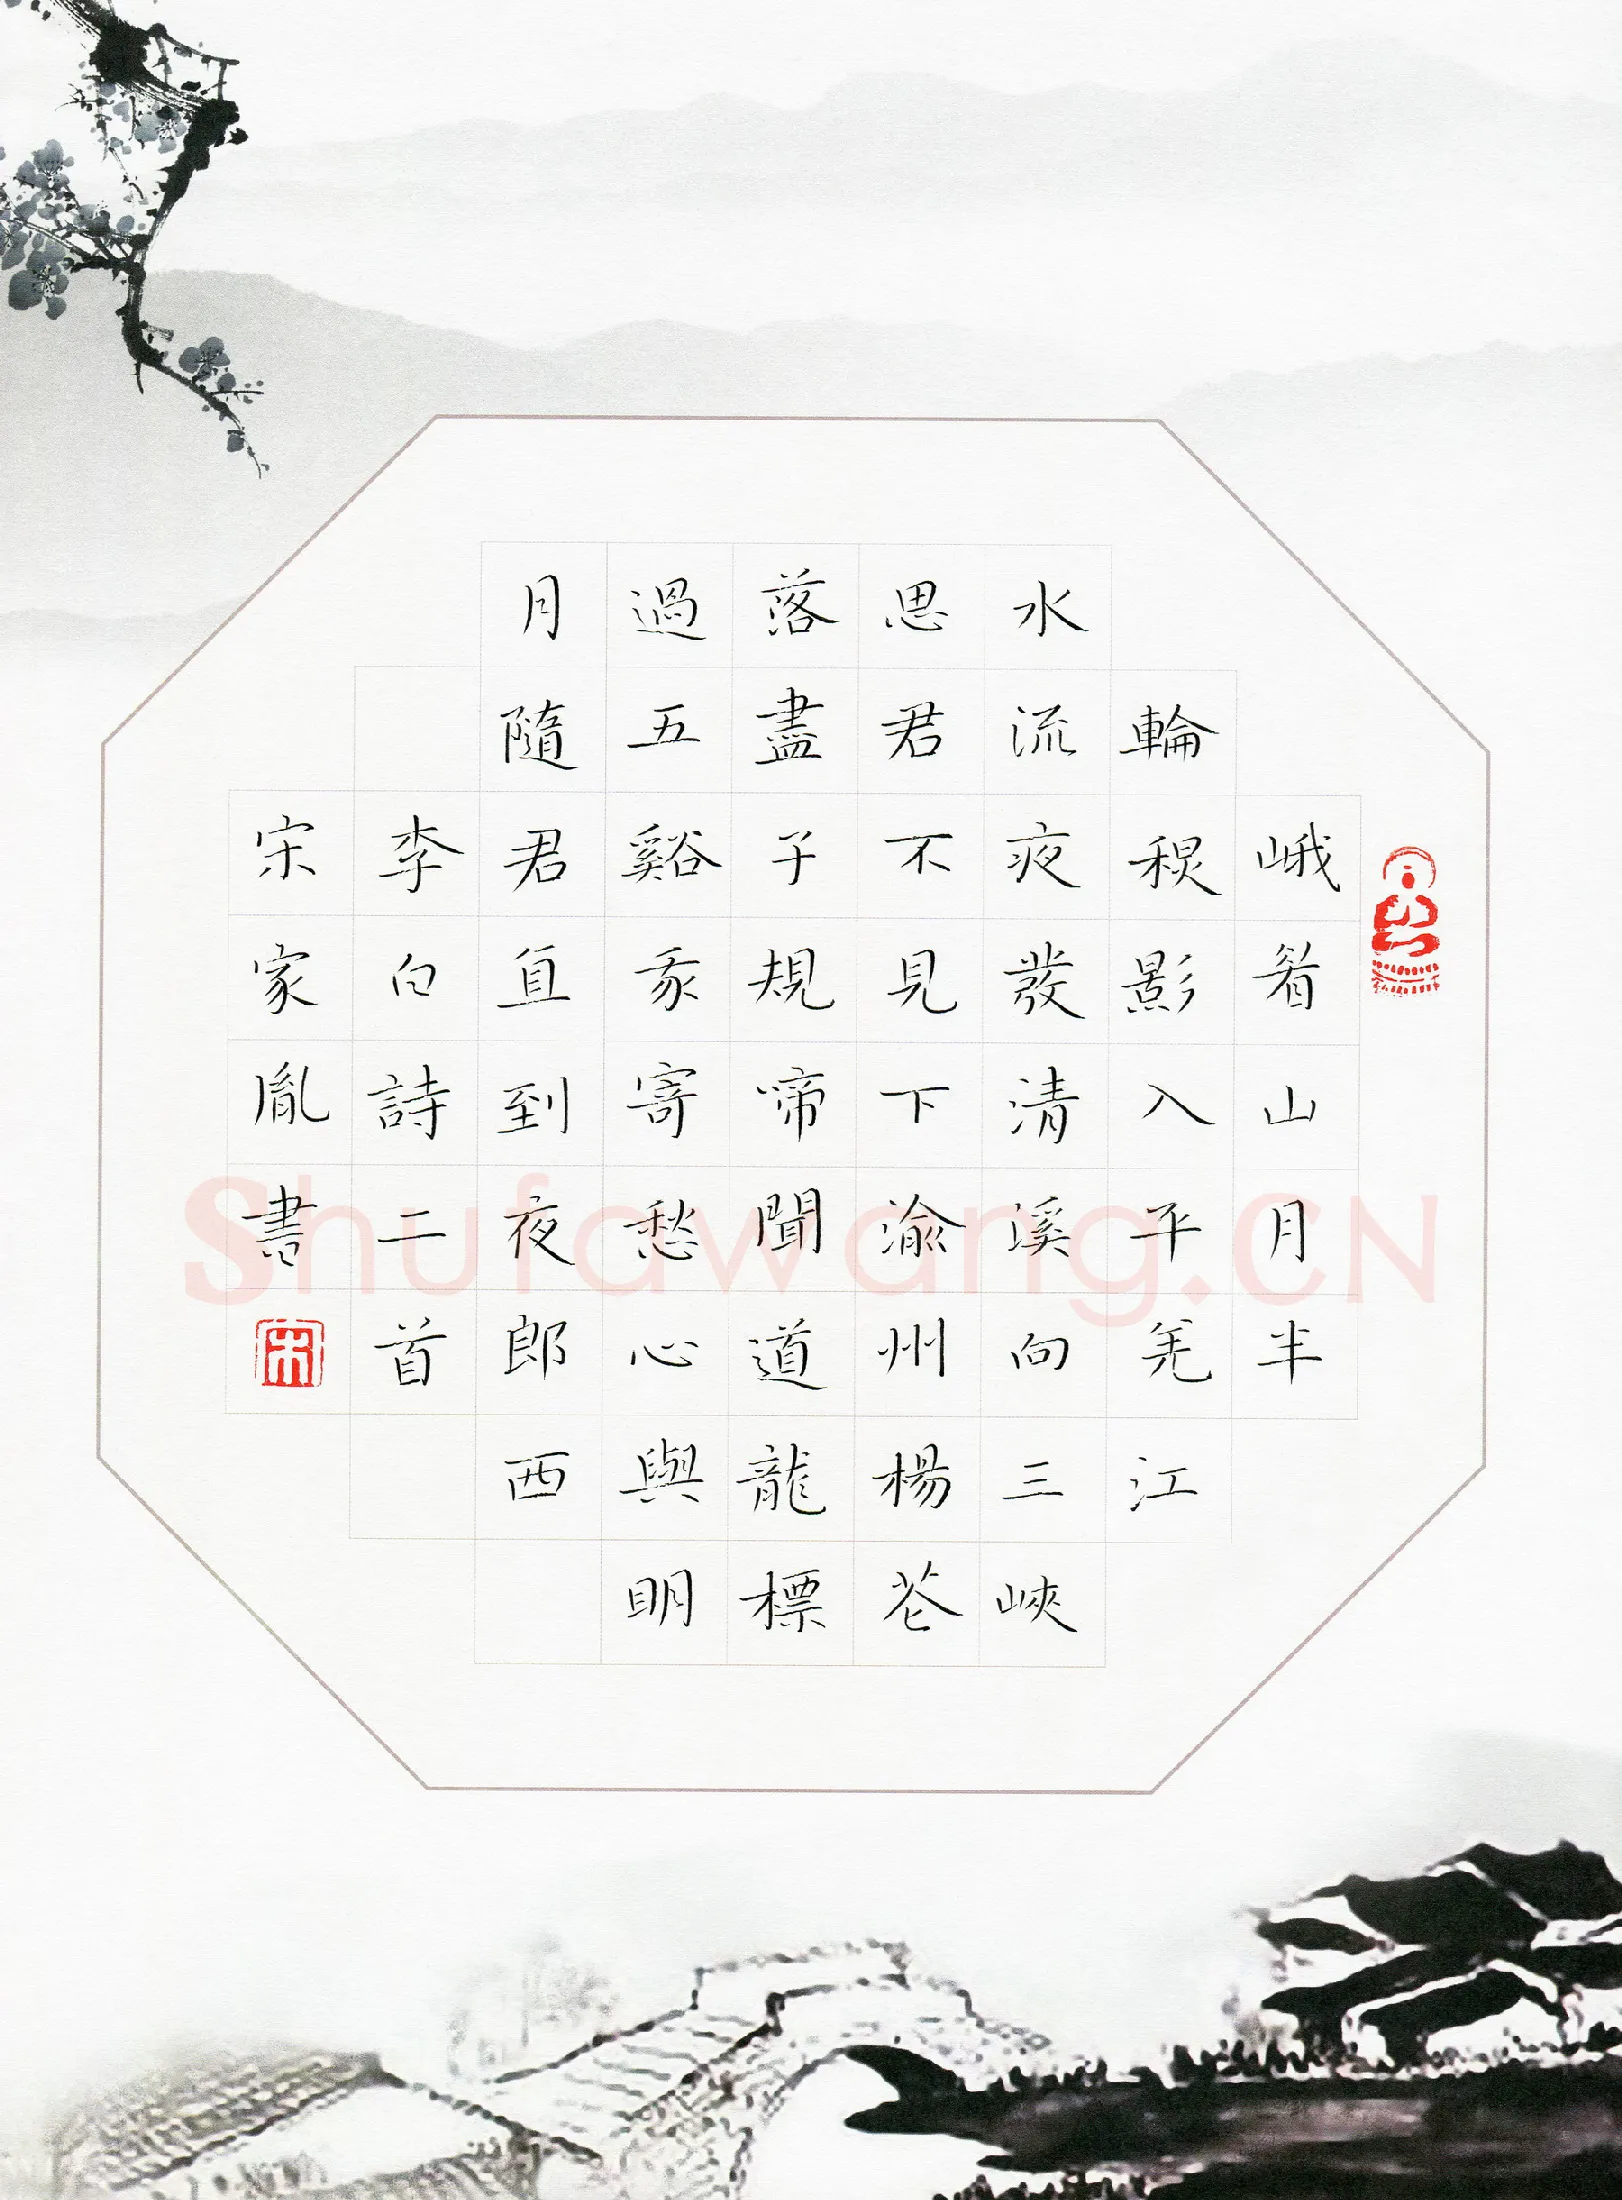 峨眉山月半
輪秋影入平羌江
水流夜發清溪向三峽
思君不見下渝州楊花
落盡子規啼聞道龍標
過五谿我寄愁心與明
月隨君直到夜郎西
李白詩二首
宋家胤書
宋
Shufawang.CN